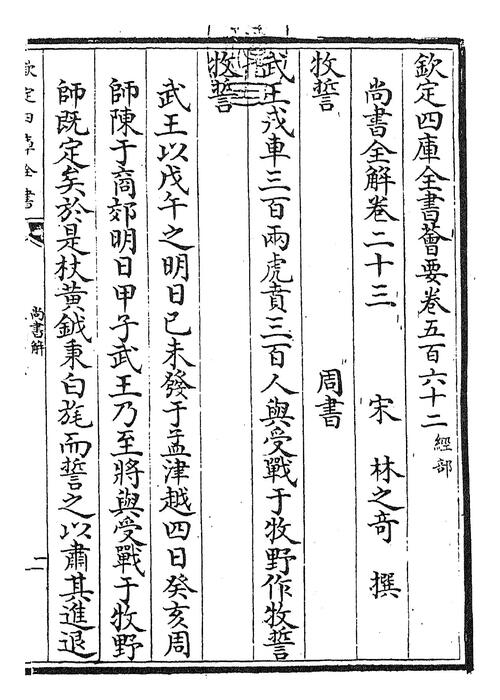 欽定四庫全書薈要卷五百六十二經部
尚書全解卷二十三 宋 林之奇 撰
牧誓 周書
武王戎車三百兩虎賁三百人與受戰于牧野作牧誓
牧誓
武王以戊午之明日己未發于孟津越四日癸亥周
師陳于商郊明日甲子武王乃至將與受戰于牧野
師既定矣於是杖黃鉞秉白旄而誓之以肅其進退
欽定四庫全書
尚書解